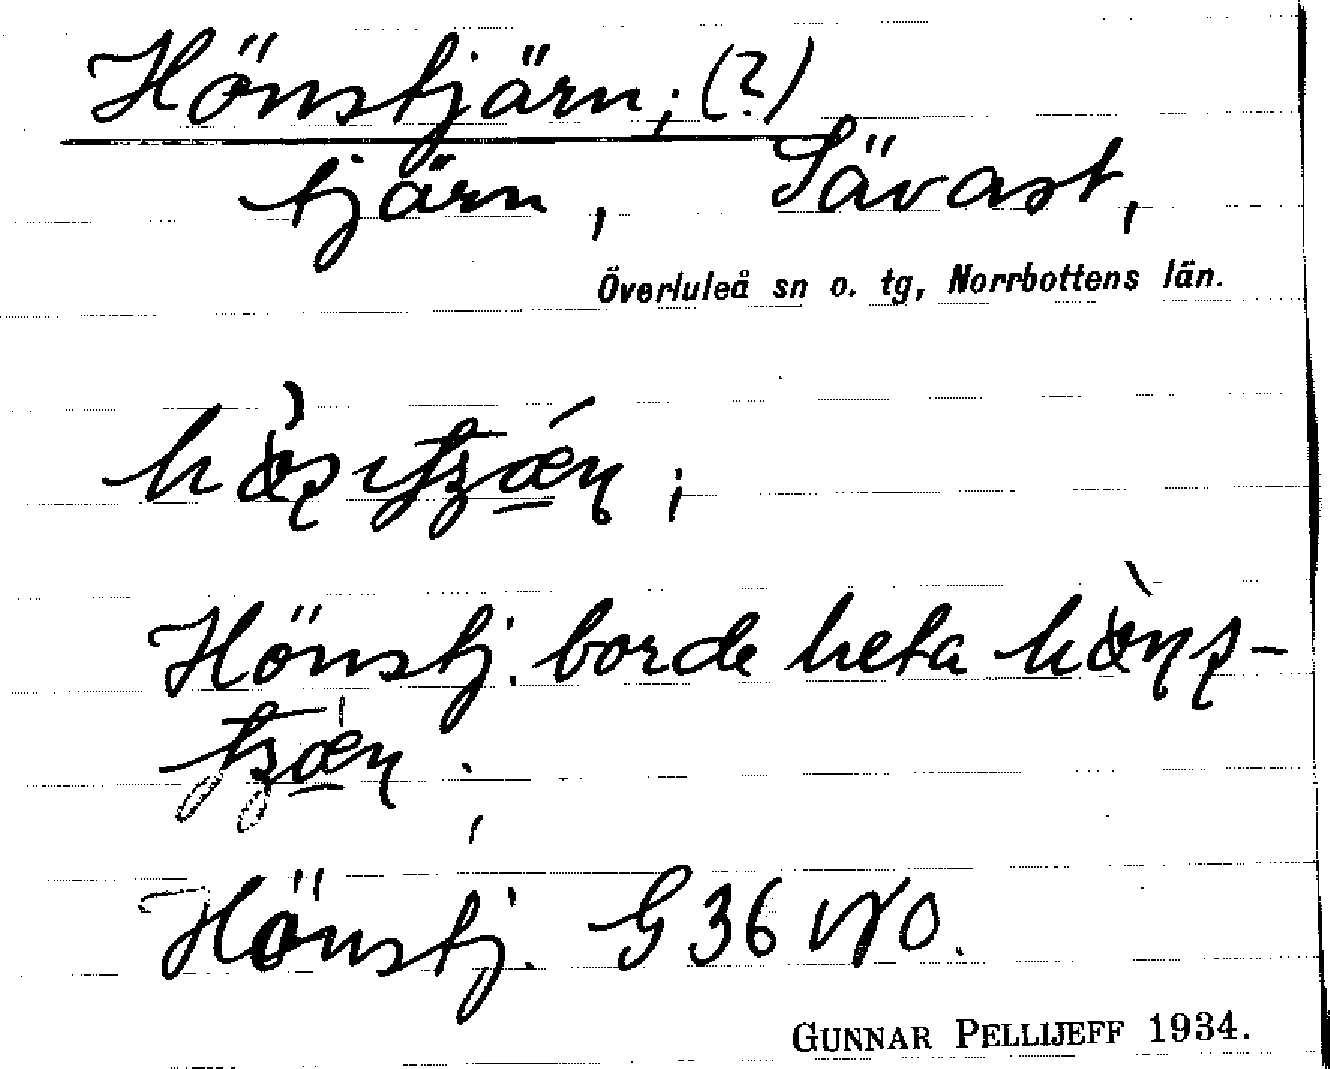 Hönstjärn; (?)
tjärn, Sävast,
Överluleå sn o. tg, Norrbottens län.
Hönstj. borde heta
Hönstj. G 36 NO.
GUNNAR PELLIJEFF 1934.